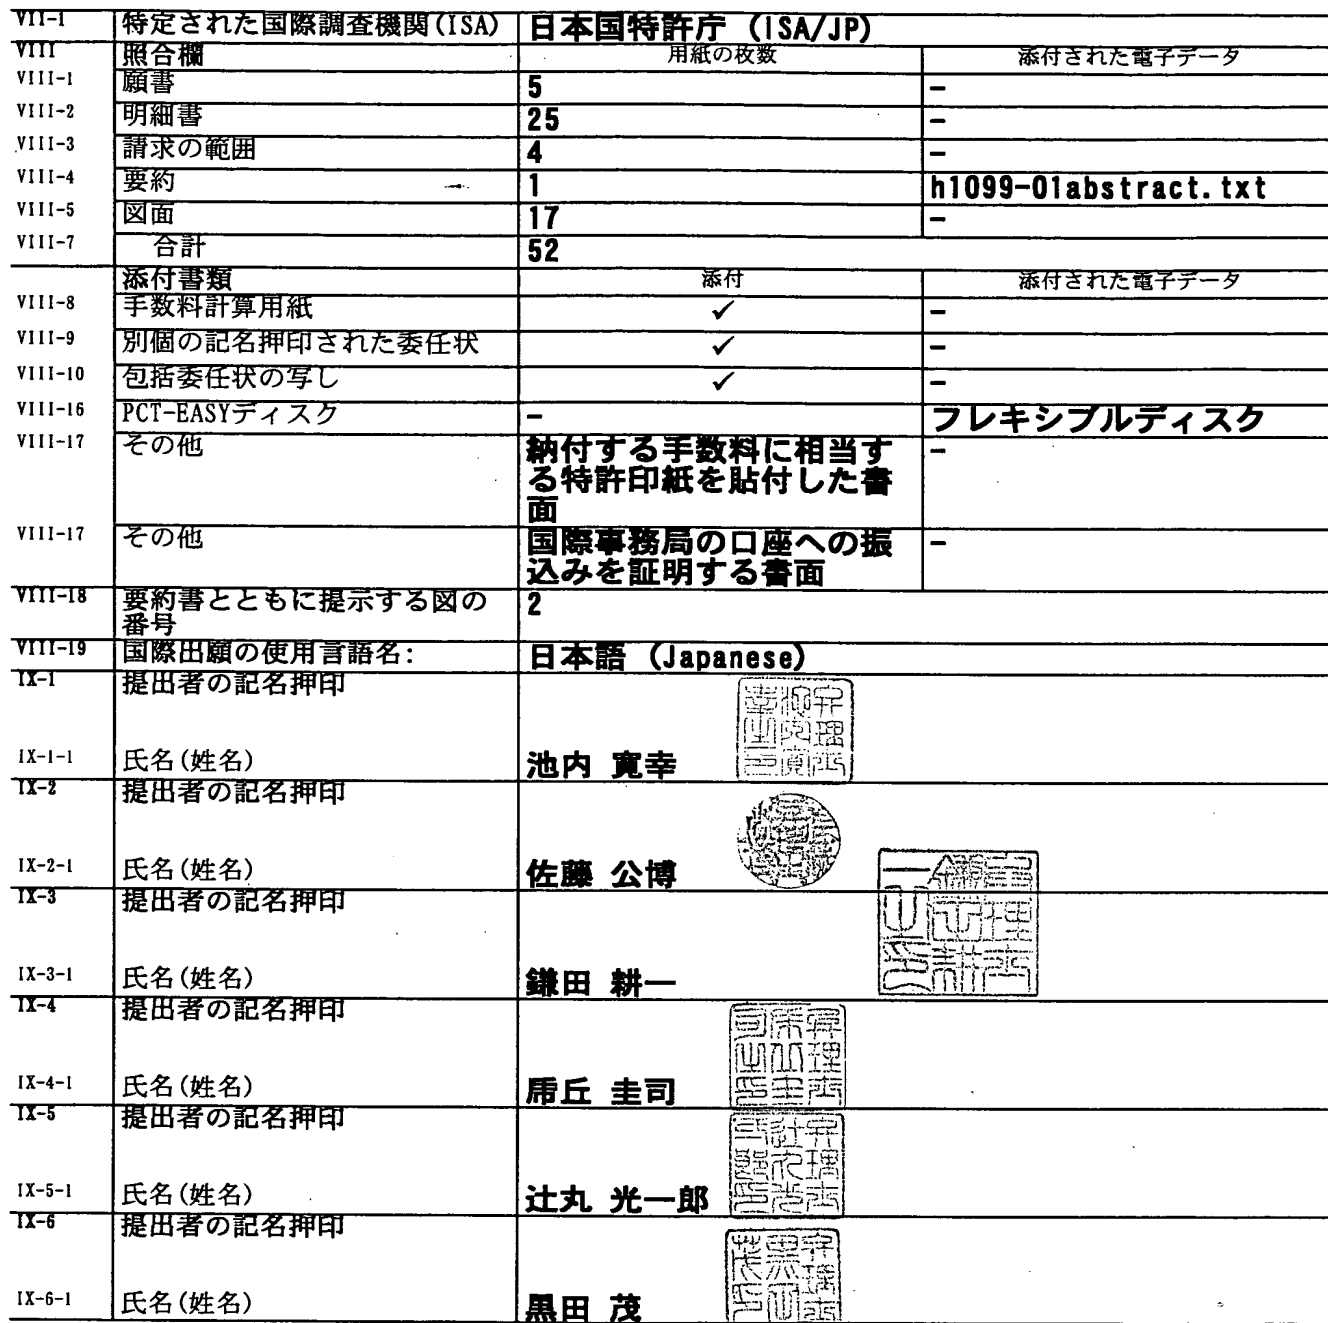 VII-1 特定された国際調査機関(ISA) 日本国特許庁 (ISA/JP)
VIII 照合欄 用紙の枚数 添付された電子データ
VIII-1 願書 5 -
VIII-2 明細書 25 -
VIII-3 請求の範囲 4 -
VIII-4 要約 1 h1099-01abstract.txt
VIII-5 図面 17 -
VIII-7 合計 52
添付書類 添付 添付された電子データ
VIII-8 手数料計算用紙 ✓ -
VIII-9 別個の記名押印された委任状 ✓ -
VIII-10 包括委任状の写し ✓ -
VIII-16 PCT-EASYディスク - フレキシブルディスク
VIII-17 その他 納付する手数料に相当す -
る特許印紙を貼付した書
面
VIII-17 その他 国際事務局の口座への振 -
込みを証明する書面
VIII-18 要約書とともに提示する図の 2
番号
VIII-19 国際出願の使用言語名: 日本語 (Japanese)
IX-1 提出者の記名押印
IX-1-1 氏名(姓名) 池内 寛幸
IX-2 提出者の記名押印
IX-2-1 氏名(姓名) 佐藤 公博
IX-3 提出者の記名押印
IX-3-1 氏名(姓名) 鎌田 耕一
IX-4 提出者の記名押印
IX-4-1 氏名(姓名) 丘 圭司
IX-5 提出者の記名押印
IX-5-1 氏名(姓名) 辻丸 光一郎
IX-6 提出者の記名押印
IX-6-1 氏名(姓名) 黒田 茂